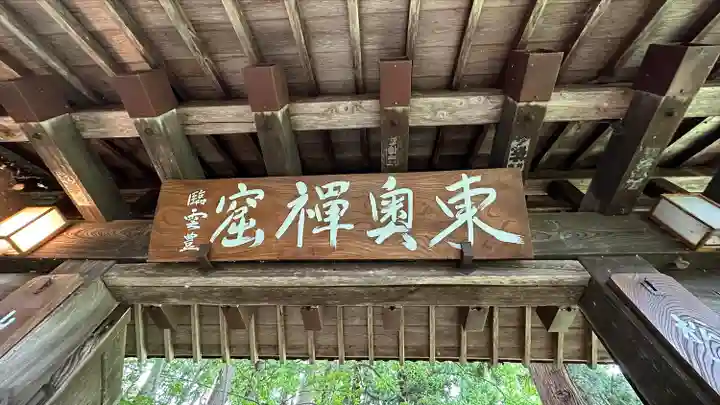 東奥禪窟
臨雲豊